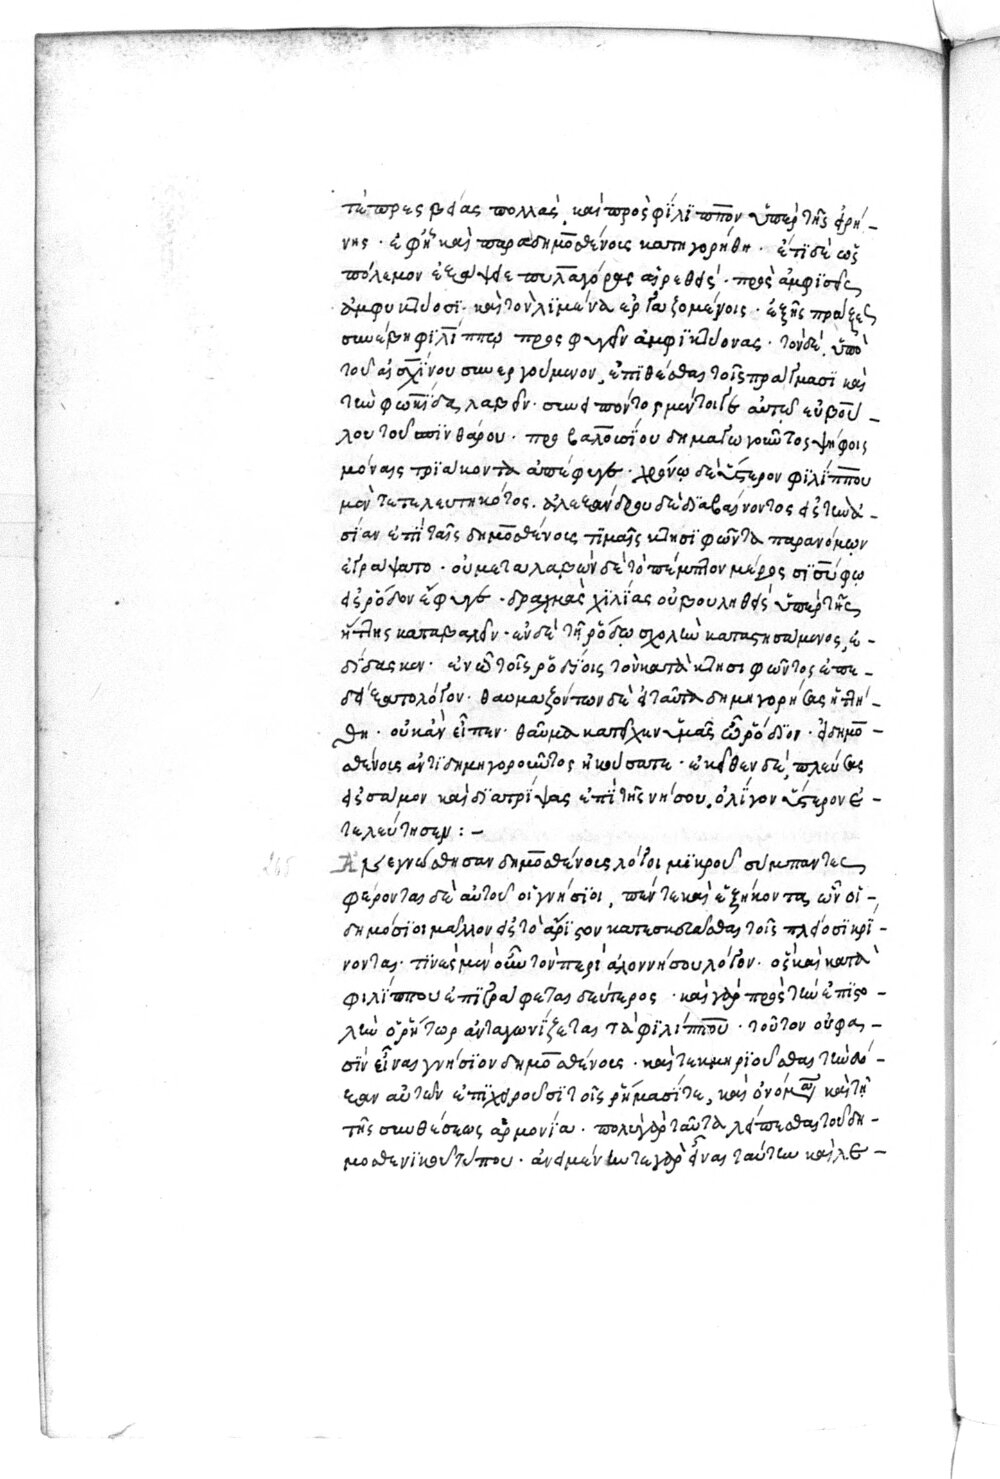 τὲ πρεσβείας πολλὰς, καὶ πρὸς φίλιππον ὑπὲρ τῆς εἰρή-
νης· ἐφ᾽ ἧ καὶ παρὰ δημοσθένοις κατηγορήθη· ἔτι δὲ ὡς
πόλεμον ἐξῆψε πυλαγόρας αἱρεθεὶς· πρὸς ἀμφισσεῖς
ἀμφικτύοσι· καὶ τὸν λιμένα ἐργαζομένοις· ἑξῆς πράξεις
συνέβη φιλίππω προσφυγεῖν ἀμφικτύονας· τὸν δὲ, ὑπὸ
τοῦ αἰσχίνου συνεργούμενον, ἐπιθέσθαι τοῖς πράγμασι καὶ
τὴν φωκίδα λαβεῖν· συνειπόντος μέντοιγε αὐτῶ εὐβού-
λου τοῦ σπινθάρου· προβαλουσίου δημαγωγοῦντος ψήφοις
μόναις τριάκοντα ἀπέφυγε· χρόνω δὲ ὕστερον φιλίππου
μὲν τετελευτηκότος. ἀλεξάνδρου δὲ διαβαίνοντος εἰς τὴν ἀ-
σίαν ἐπὶ ταῖς δημοσθένοις τιμαῖς κτησιφῶντα παρανόμων
ἐγράψατο· οὐ μεταλαβὼν δὲ τὸ πέμπτον μέρος σισύφω
εἰς ῥόδον ἔφυγε· δραχμὰς χιλίας οὐ βουληθεὶς ὑπὲρ τῆς
ἥττης καταβαλεῖν· ἐν δὲ τῆ ῥόδω σχολὴν καταστησάμενος, ἐ-
δίδασκεν· ἐν ὧ τοῖς ῥοδίοις τὸν κατὰ κτησιφῶντος ἐπε-
δείξατο λόγον· θαυμαζόντων δὲ εἰ ταῦτα δημηγορήσας ἥττή-
θη· οὐκ ἂν εἶπεν· θαῦμα κατεῖχεν ὑμᾶς ὦ ῥόδιοι· εἰ δημο-
σθένοις ἀντιδημηγοροῦντος ἠκούσατε· ἐκεῖθεν δὲ, πλεύσας
εἰς σάμον καὶ διατρίψας ἐπὶ τῆς νήσου, ὀλίγον ὕστερον ἐ-
τελεύτησεν :-
Ἀνεγνώσθησαν δημοσθένοις λόγοι μικροῦ σύμπαντες
φέρονται δὲ αὐτοῦ οἱ γνήσιοι, πέντε καὶ ἑξήκοντα, ὧν οἱ-
δημόσιοι μᾶλλον εἰς τὸ ἄριστον κατεσκευάσθαι τοῖς πλείοσι κρί-
νονται· τινὲς μὲν οὖν τὸν περὶ ἁλοννήσου λόγον· ὃς καὶ κατὰ
φιλίππου ἐπιγράφεται δεύτερος· καὶ γὰρ πρὸς τὴν ἐπιστο-
λὴν ὁ ῥήτωρ ἀνταγωνίζεται τὰ φιλίππου· τοῦτον οὔ φα-
σιν εἶναι γνήσιον δημοσθένοις· καὶ τεκμηριοῦσθαι τὴν δό-
ξαν αὐτῶν ἐπιχειροῦσι τοῖς ῥήμασί τε, καὶ ὀνόμασι καὶ τῆ
τῆς συνθέσεως ἁρμονία· πολὺ γὰρ ταῦτα λείπεσθαι τοῦ δη-
μοσθενικοῦ τύπου· ἀνειμένην τε γὰρ εἶναι ταύτην καὶ λε-